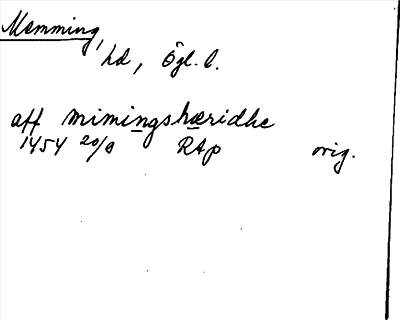 Memming,
hd, Ögl. l.
aff mimingshæridhe
1454 20/8 RAp orig.